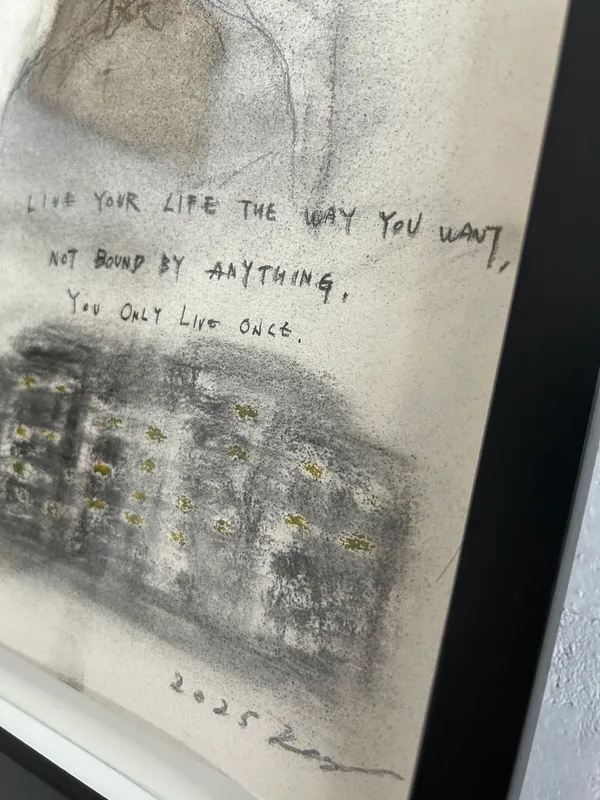 LIVE YOUR LIFE THE WAY YOU WANT,
NOT BOUND BY ANYTHING.
YOU ONLY LIVE ONCE.
2025